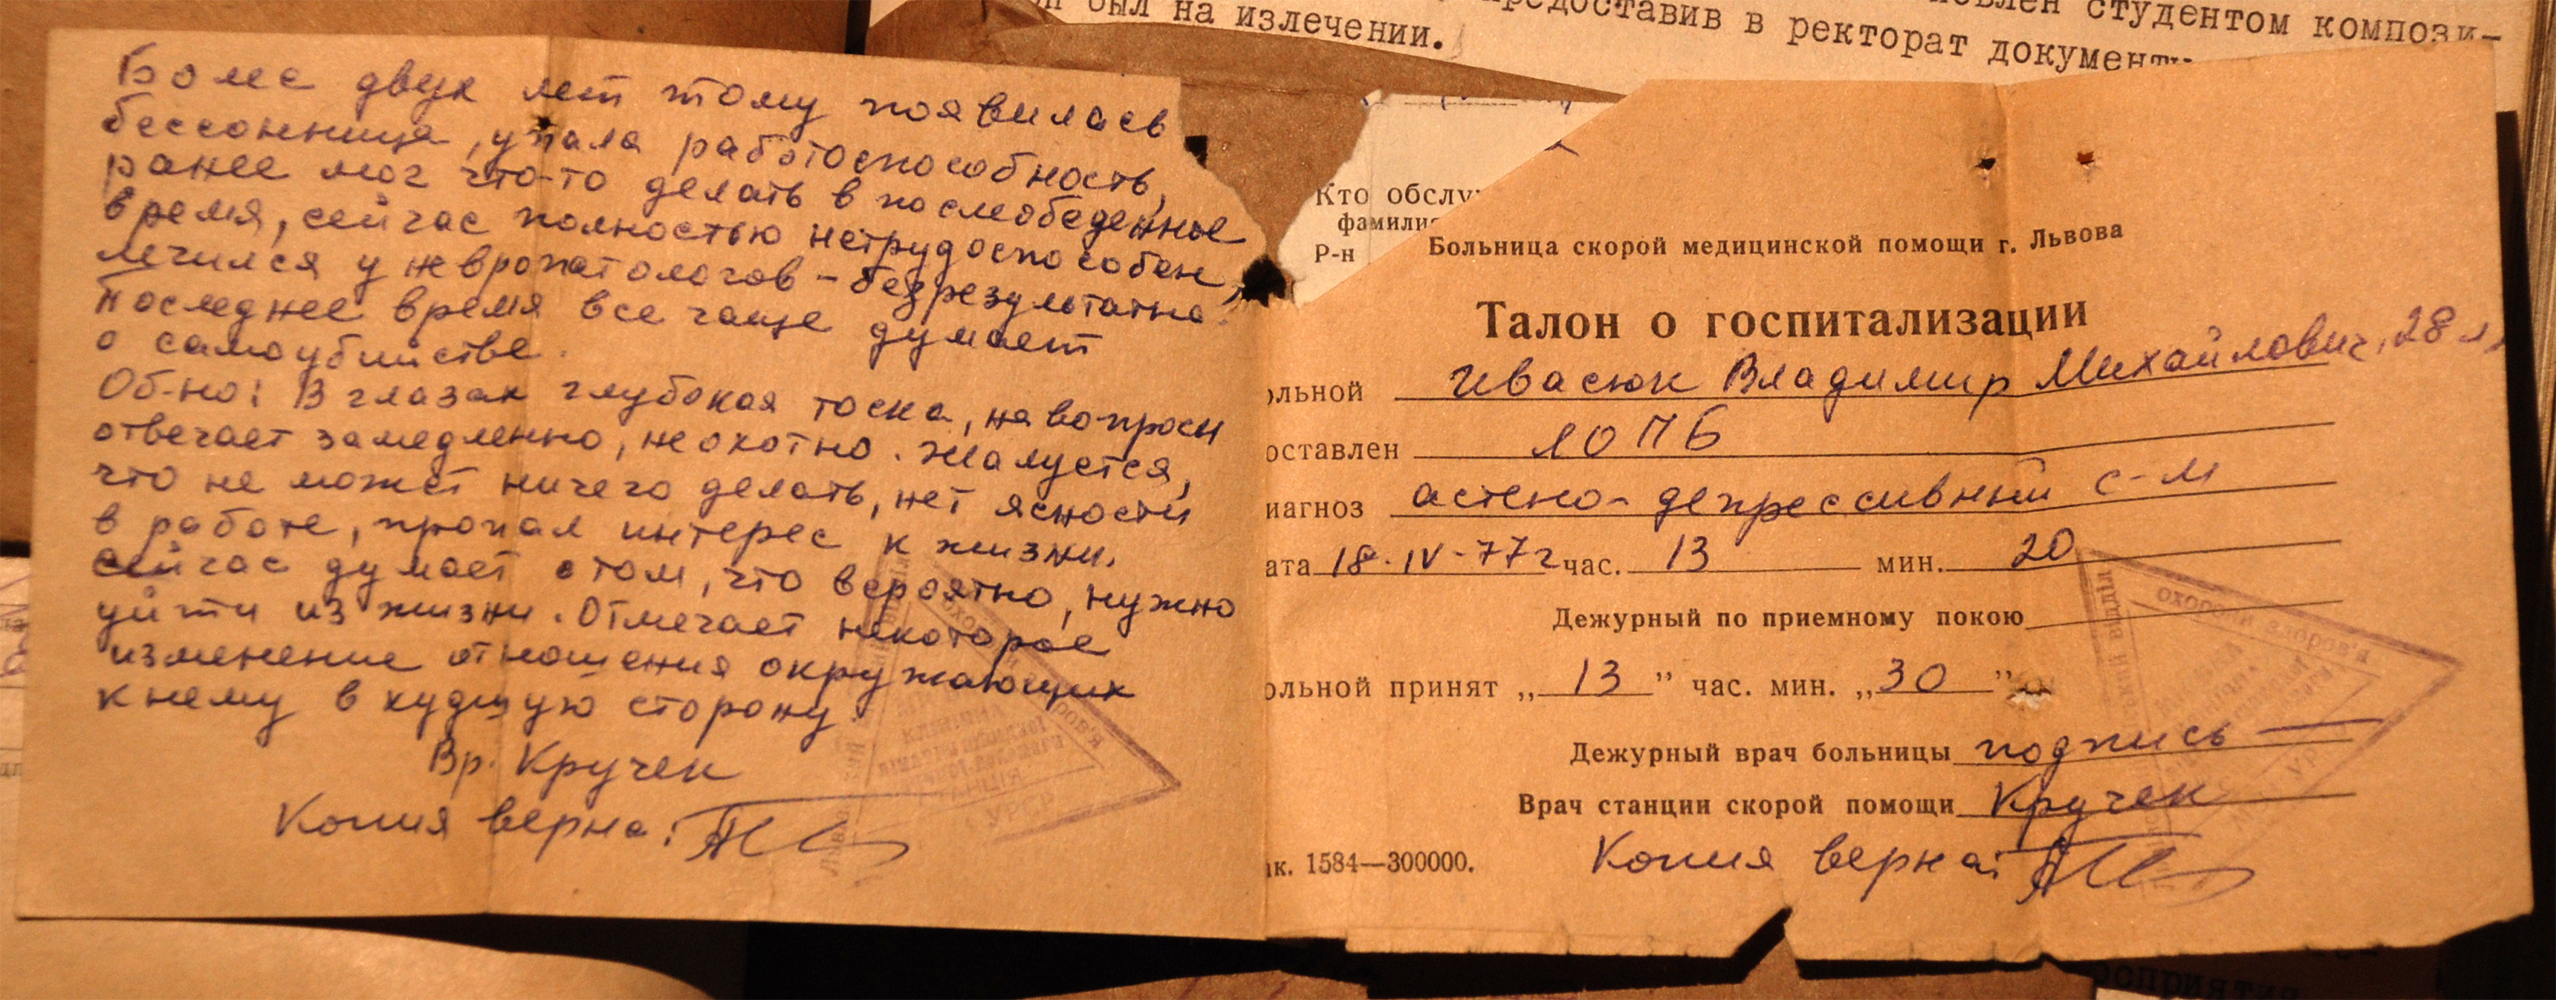 был на излечении.
предоставив в ректорат документы
студентом компози-
Более двух лет тому появилась
бессонница, упала работоспособность,
ранее мог что-то делать в послеобеденное
время, сейчас полностью нетрудоспособен,
лечился у невропатологов – безрезультатно.
Последнее время все чаще думает
о самоубийстве.
Об-но: В глазах глубокая тоска, на вопросы
отвечает замедленно, неохотно. Жалуется,
что не может ничего делать, нет ясности
в работе, пропал интерес к жизни.
Сейчас думает о том, что вероятно, нужно
уйти из жизни. Отмечает некоторое
изменение отношения окружающих
к нему в худшую сторону.
Вр. Кручек
Копия верна:
Кто обслу
фамилия
Р-н
Больница скорой медицинской помощи г. Львова
Талон о госпитализации
ольной Ивасюк Владимир Михайлович, 28 л.
оставлен ЛОПБ
иагноз астено-депрессивный с-м
ата 18.IV-77г час. 13 мин. 20
Дежурный по приемному покою
ольной принят „13” час. мин. „30”
Дежурный врач больницы подпись
Врач станции скорой помощи Кручек
ак. 1584—300000.
Копия верна:
охорони здоров'я
УРСР